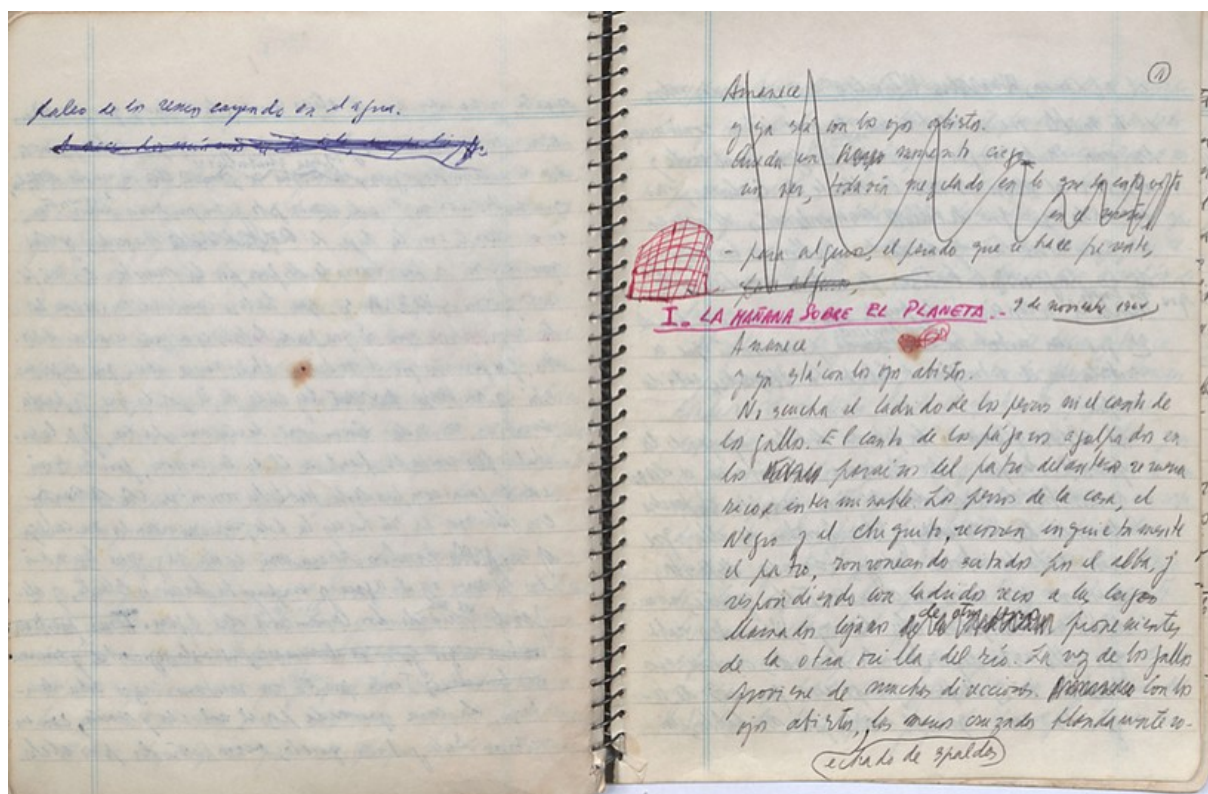 paleo de los remos cayendo en el agua.
1
Amanece
y ya está con los ojos abiertos.
Queda un momento ciego
sin ver, todavía mezclado en lo que
en el
para algunos, el pasado que se hace presente,
para algunos,
I. LA MAÑANA SOBRE EL PLANETA.- 9 de noviembre
Amanece
y ya está con los ojos abiertos.
No escucha el ladrido de los perros ni el canto de
los gallos. El canto de los pájaros agolpados en
los paraísos del patio delantero resuena
rico e interminable. Los perros de la casa, el
Negro y el Chiquito, recorren inquietamente
el patio, ronroneando excitados por el alba, y
respondiendo con ladridos secos a los largos
llamados lejanos de otros provenientes
de la otra orilla del río. La voz de los gallos
proviene de muchas direcciones. Con los
ojos abiertos, las manos cruzadas blandamente so-
echado de espaldas